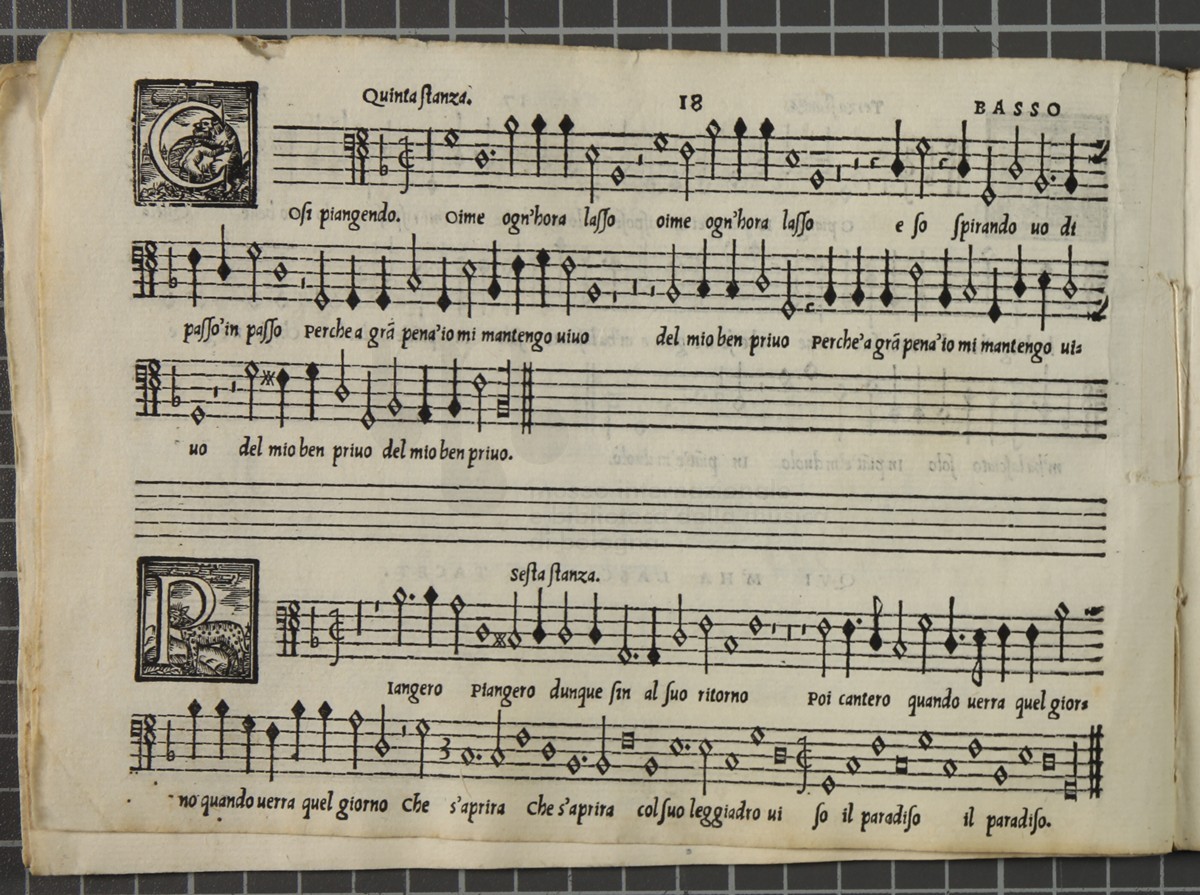 Quinta ſtanza. 18 BASSO
COſi piangendo. Oime ogn'hora laſſo oime ogn'hora laſſo e ſo ſpirando uo di
paſſo'in paſſo Perche a grã pena'io mi mantengo uiuo del mio ben priuo Perche'a grã pena'io mi mantengo ui⸗
uo del mio ben priuo del mio ben priuo.
Seſta ſtanza.
PIangero Piangero dunque ſin al ſuo ritorno Poi cantero quando uerra quel gior⸗
no quando uerra quel giorno Che s'aprira Che s'aprira col ſuo leggiadro ui ſo il paradiſo il paradiſo.